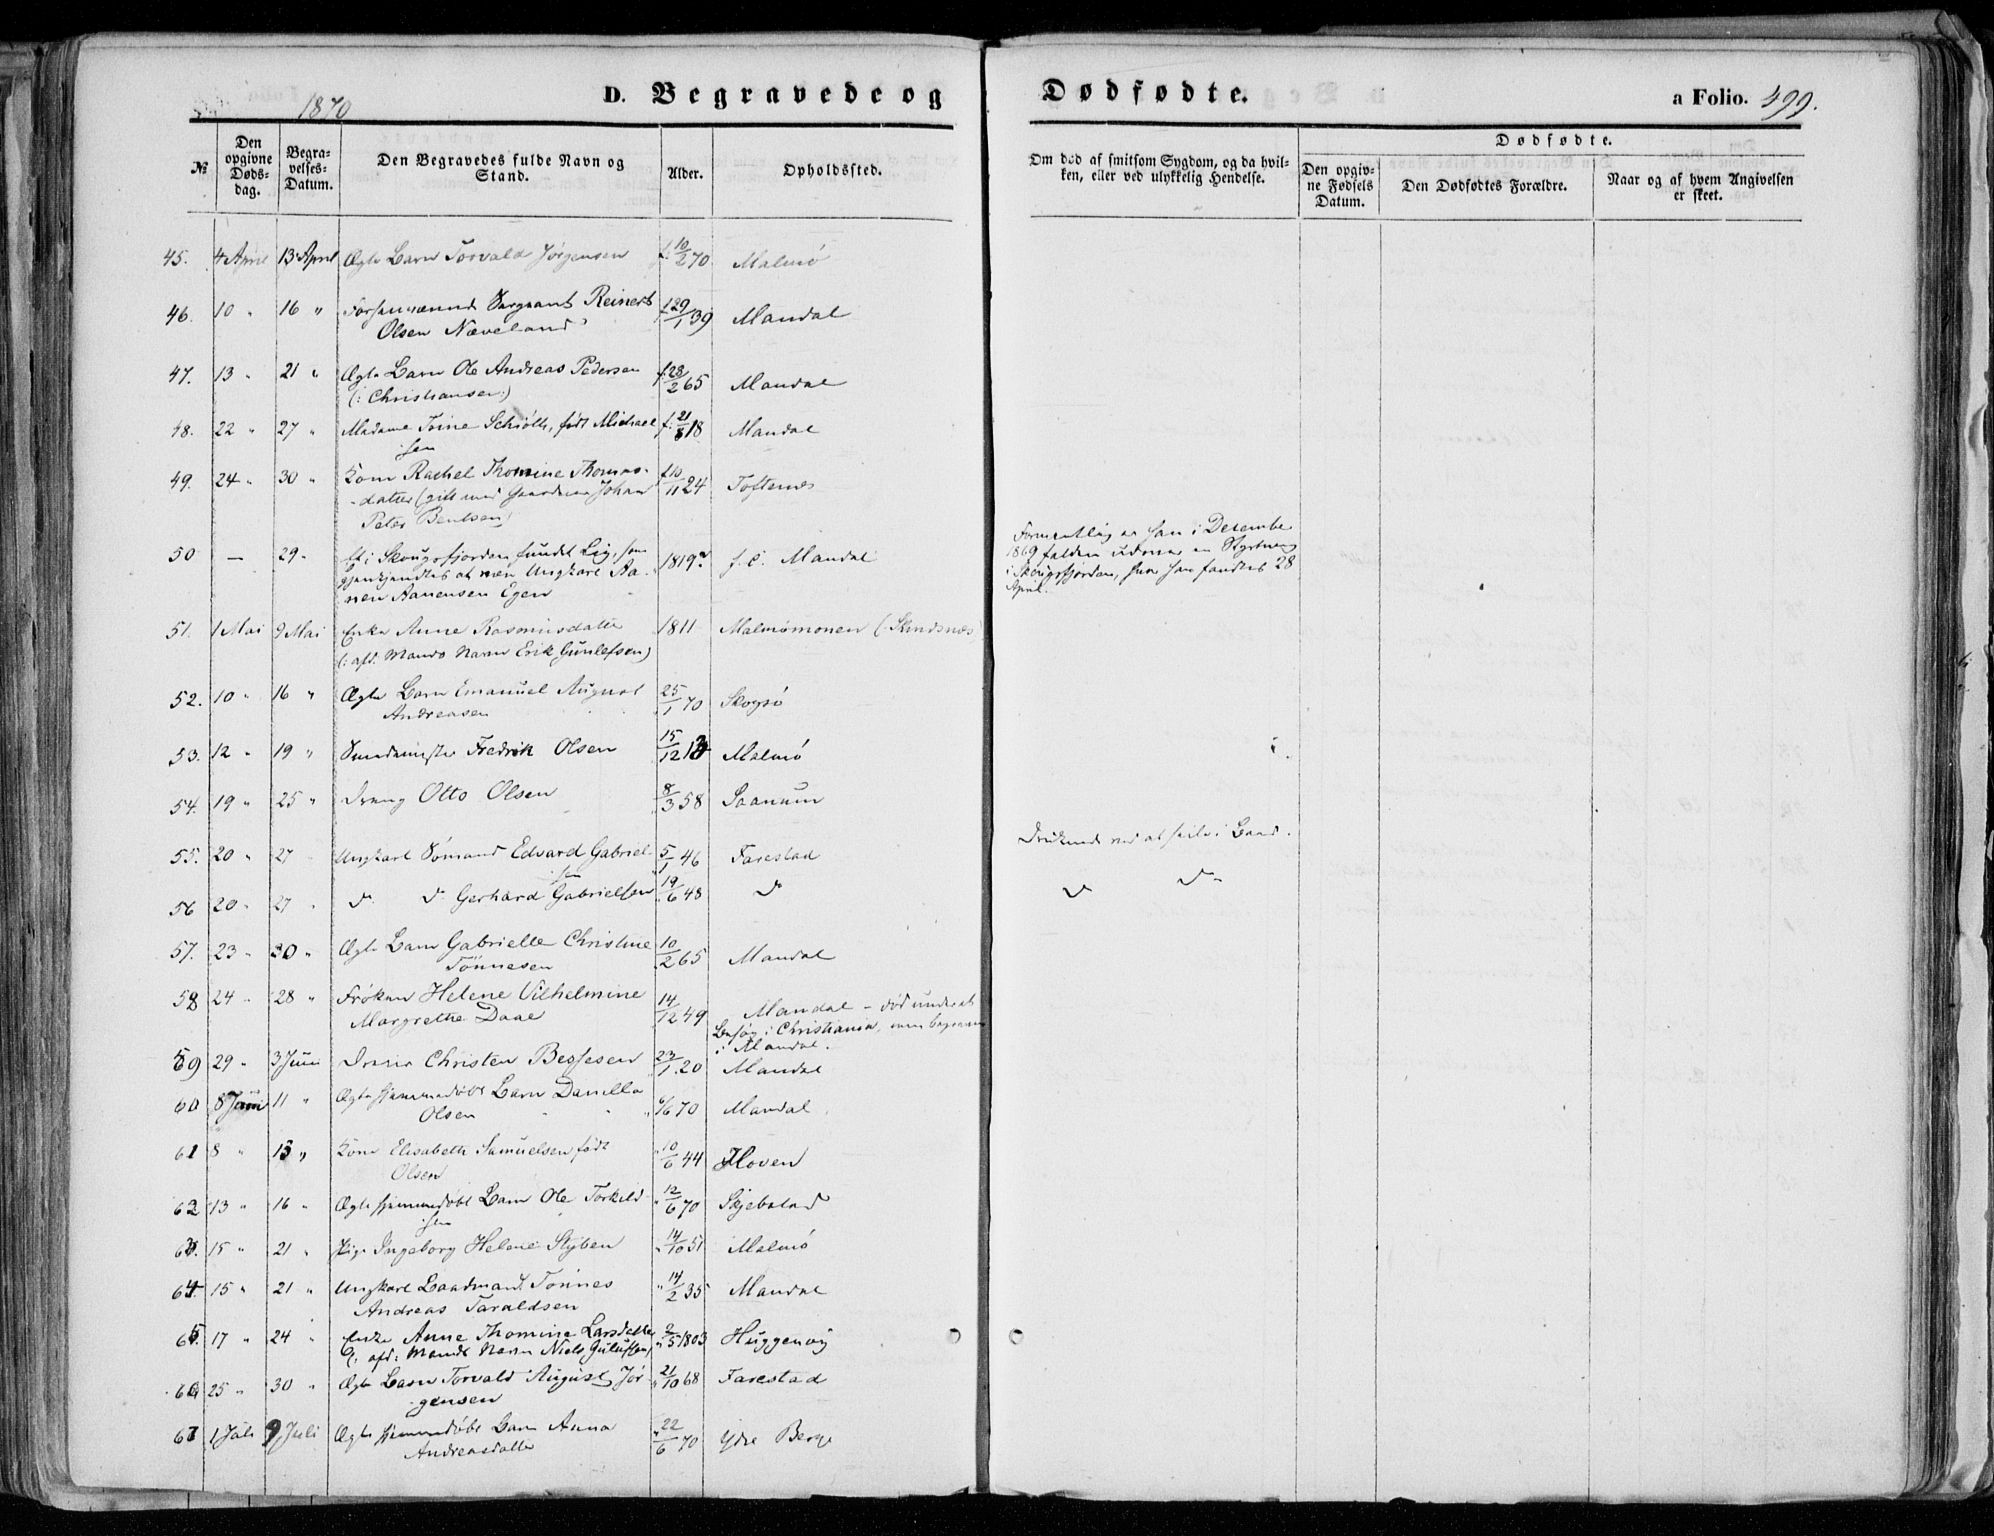 1870
D. Begravede og Dødfødte.
a Folio. 499.
№
Den opgivne Døds-dag.
Begra-velses-Datum.
Den Begravedes fulde Navn og Stand.
Alder.
Opholdssted.
Om død af smitsom Sygdom, og da hvil-ken, eller ved ulykkelig Hendelse.
Dødfødte.
Den opgiv-ne Fødsels Datum.
Den Dødfødtes Forældre.
Naar og af hvem Angivelsen er skeet.
45. 4 April 13 April Ægte Barn Torvald Jørgensen f. 10/2 70 Malmø
46. 10 " 16 " Sergeant Reinert
Olsen Næveland 29/1 39 Mandal
47. 13 " 21 " Ægte Barn Ole Andreas Pedersen
(: Christiansen :) f. 28/2 65 Mandal
48. 22 " 27 " Madame Toine Schiøtt, født Michael
sen f. 21/8 18 Mandal
49. 24 " 30 " Kone Rachel Thomine Thomas-
datter (gift med Johan
Peter Bentsen) f. 10/11 24 Toftenes
50 — 29 " Et i Skougsfjorden fundet Lig, som
gjenkjendtes at være Ungkarl Aa-
nen Aanensen Egen 1819? Mandal
Formentlig er han i December
1869 falden ud
i Skougsfjorden, hvor han fandtes 28
April.
51. 1 Mai 9 Mai Enke Anne Rasmusdatter
(: afd. Mands Navn Erik Gunlefsen) 1811 Malmømonen (Sandsnæs)
52. 10 " 16 " Ægte Barn Emanuel August
Andreasen 25/1 70 Skogsø
53. 12 " 19 " Smedemester Fredrik Olsen 15/12 13 Malmø
54. 19 " 25 " Dreng Otto Olsen 8/3 58 Saanum
55. 20 " 27 Ungkarl Sømand Edvard Gabriel-
sen 5/1 46 Farestad Druknede ved at seile i Baad.
56 20 " 27 " d. d. Gerhard Gabrielsen 19/6 48 d. d. d.
57. 23 " 30 " Ægte Barn Gabrielle Christine
Tønnesen 10/2 65 Mandal
58 24 " 28 " Frøken Helene Vilhelmine
Margrethe Daae 14/12 49 Mandal - død under et
Besøg i Christiania, men begraven
i Mandal.
59 29 " 3 Juni Christen Bessesen 23/1 20 Mandal
60 8 Juni 11 " Ægte hjemmedøbt Barn Danilla
Olsen 6/6 70 Mandal
61 8 " 15 " Kone Elisabeth Samuelsen født
Olsen 10/6 44 Hoven
62 13 " 16 " Ægte hjemmedøbt Barn Ole Torkild-
sen 12/6 70 Skjebstad
63. 15 " 21 " Pige Ingeborg Helene Styben 14/10 51 Malmø
64. 15 " 21 " Ungkarl Baadmand Tønnes
Andreas Taraldsen 14/2 35 Mandal
65. 17 " 24 " Enke Anne Thomine Larsdatter
(: afd: Mands Navn Niels Gulufsen) 2/5 1803 Huggenvig
66 25 " 30 " Ægte Barn Torvald August Jør-
gensen 21/10 68 Farestad
67 1 Juli 9 Juli Ægte hjemmedøbt Barn Anna
Andreasdatter 22/6 70 Ydre Berge